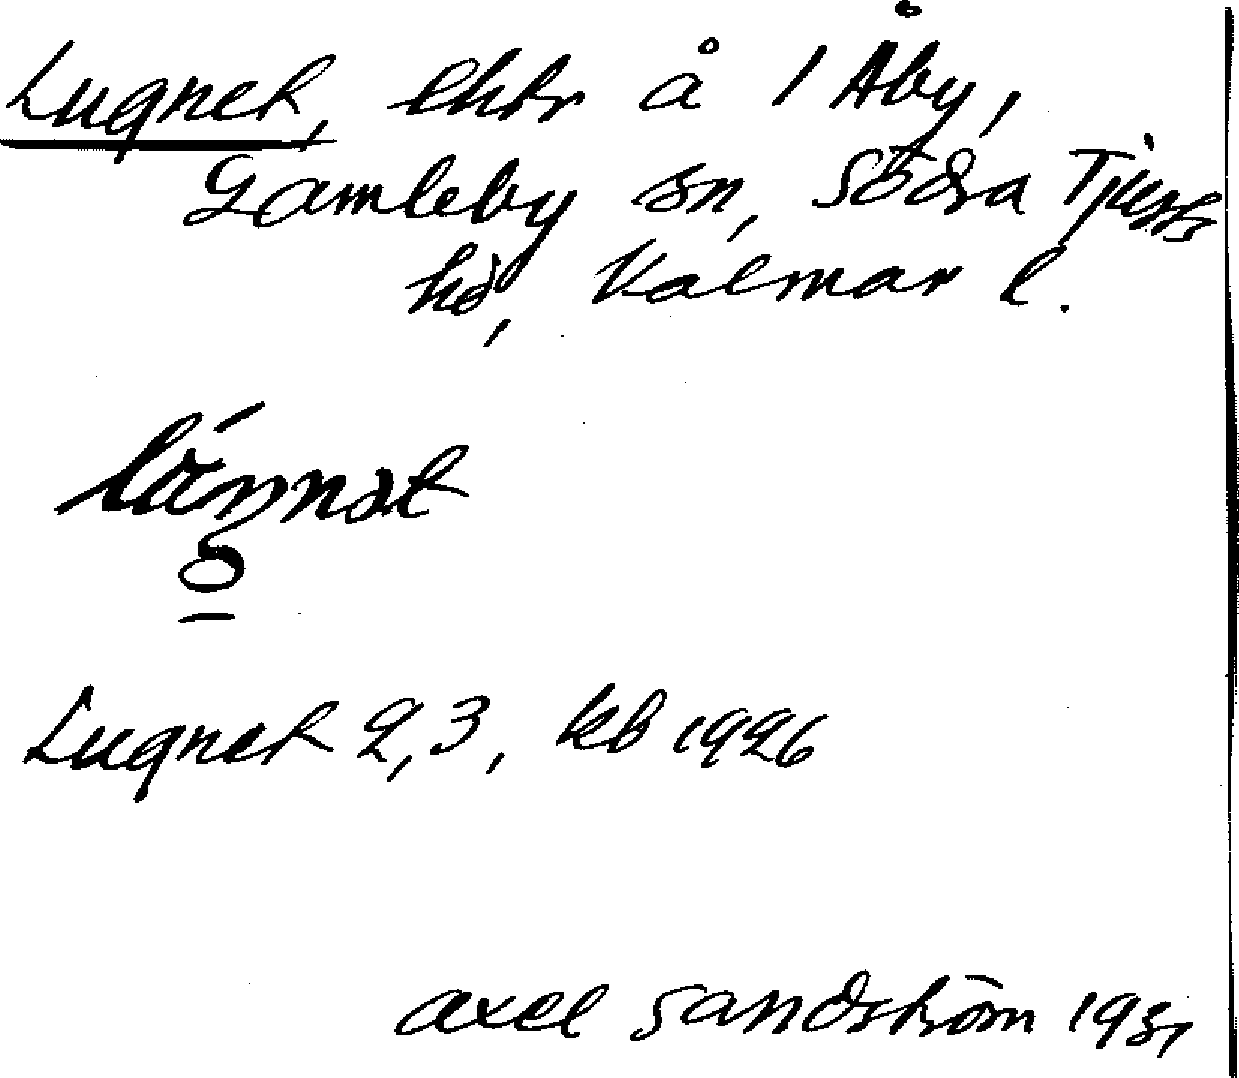 Lugnet, lhtr å 1 Åby,
Gamleby sn, Södra Tjusts
hd, Kalmar l.
Lugnet 2,3, kb 1926
Axel Sandström 1931